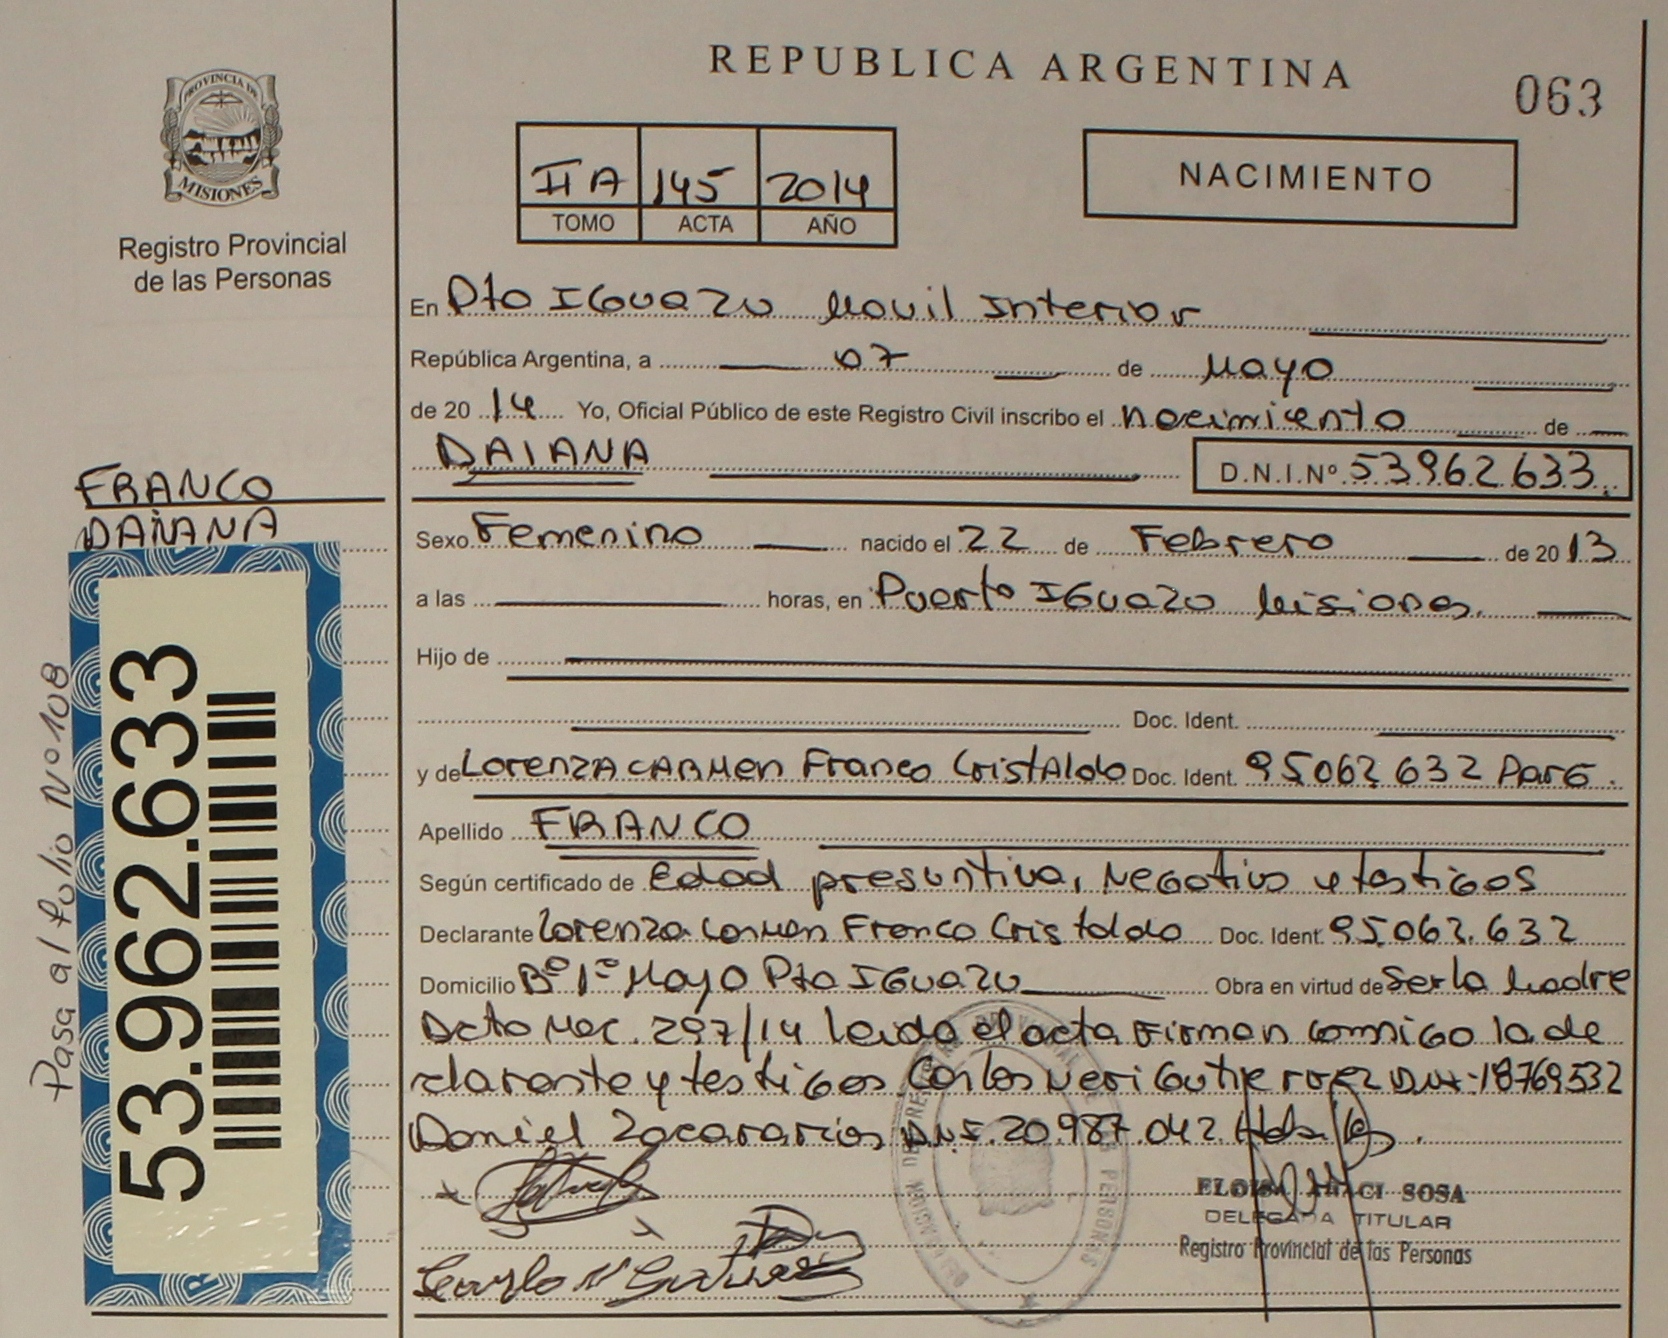 REPUBLICA ARGENTINA
063
PROVINCIA DE
MISIONES
Registro Provincial
de las Personas
II A 145 2014
TOMO ACTA AÑO
NACIMIENTO
En Pto IGuazu Movil Interior
República Argentina, a 07 de Mayo
de 2014 Yo, Oficial Público de este Registro Civil inscribo el nacimiento de
DAIANA D.N.I.Nº 53962633
FRANCO
DAIANA
Sexo Femenino nacido el 22 de Febrero de 2013
a las horas, en Puerto IGuazu Misiones.
Hijo de
Doc. Ident.
y de Lorenza CARMen Franco CristAldo Doc. Ident. 95062632 ParG.
Apellido FRANCO
Según certificado de Edad presuntiva, Negativo y testigos
Declarante Lorenza Carmen Franco Cristaldo Doc. Ident. 95.062.632
Domicilio Bº 1º Mayo Pto IGuazu Obra en virtud de Ser la Madre
Dcto Nac. 297/14 leida el acta Firman conmigo la de
clarante y testigos Carlos Neri Gutierrez DNI:18769532
Daniel Zacararias DNI.20.987.042 Habiles.
Carlo N Gutierrez
ELOISA ARACI SOSA
DELEGADA TITULAR
Registro Provincial de las Personas
53.962.633
Pasa al folio Nº 108